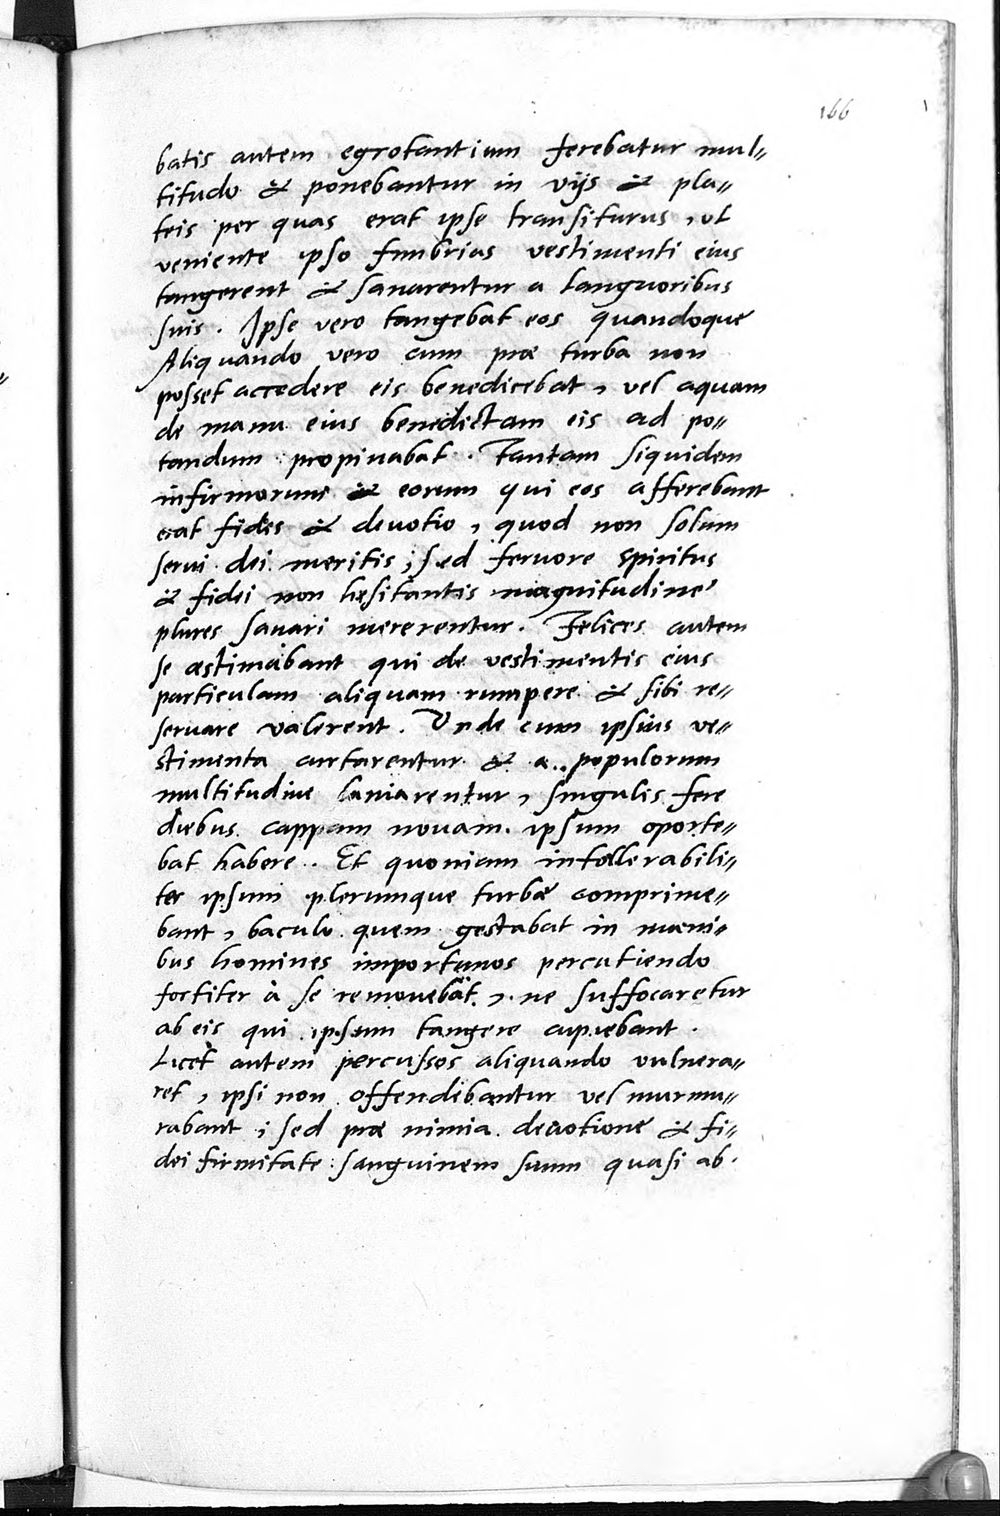 166
batis autem egrotantium ferebatur mul„
titudo & ponebantur in vijs & pla„
teis per quas erat ipse transiturus, ut
veniente ipso fimbrias vestimenti eius
tangerent & sanarentur a languoribus
suis. Ipse vero tangebat eos quandoque
Aliquando vero cum præ turba non
posset accedere eis benedicebat, vel aquam
de manu eius benedictam eis ad po„
tandum propinabat. Tantam siquidem
infirmorum & eorum qui eos afferebant
erat fides & devotio, quod non solum
servi dei meritis; sed fervore spiritus
& fidei non hæsitantis magnitudine
plures sanari mererentur. Felices autem
se æstimabant qui de vestimentis eius
particulam aliquam rumpere & sibi re„
servare valerent. Unde cum ipsius ve„
stimenta curtarentur & a populorum
multitudine laniarentur, singulis fere
diebus cappam novam ipsum oporte„
bat habere. Et quoniam intollerabili„
ter ipsum plerumque turbæ comprime„
bant, baculo quem gestabat in mani„
bus homines importunos percutiendo
fortiter à se removebat, ne suffocaretur
ab eis qui ipsum tangere cupiebant.
Licet autem percussos aliquando vulnera„
ret, ipsi non offendebantur vel murmu„
rabant; sed præ nimia devotione & fi„
dei firmitate sanguinem suum quasi ab